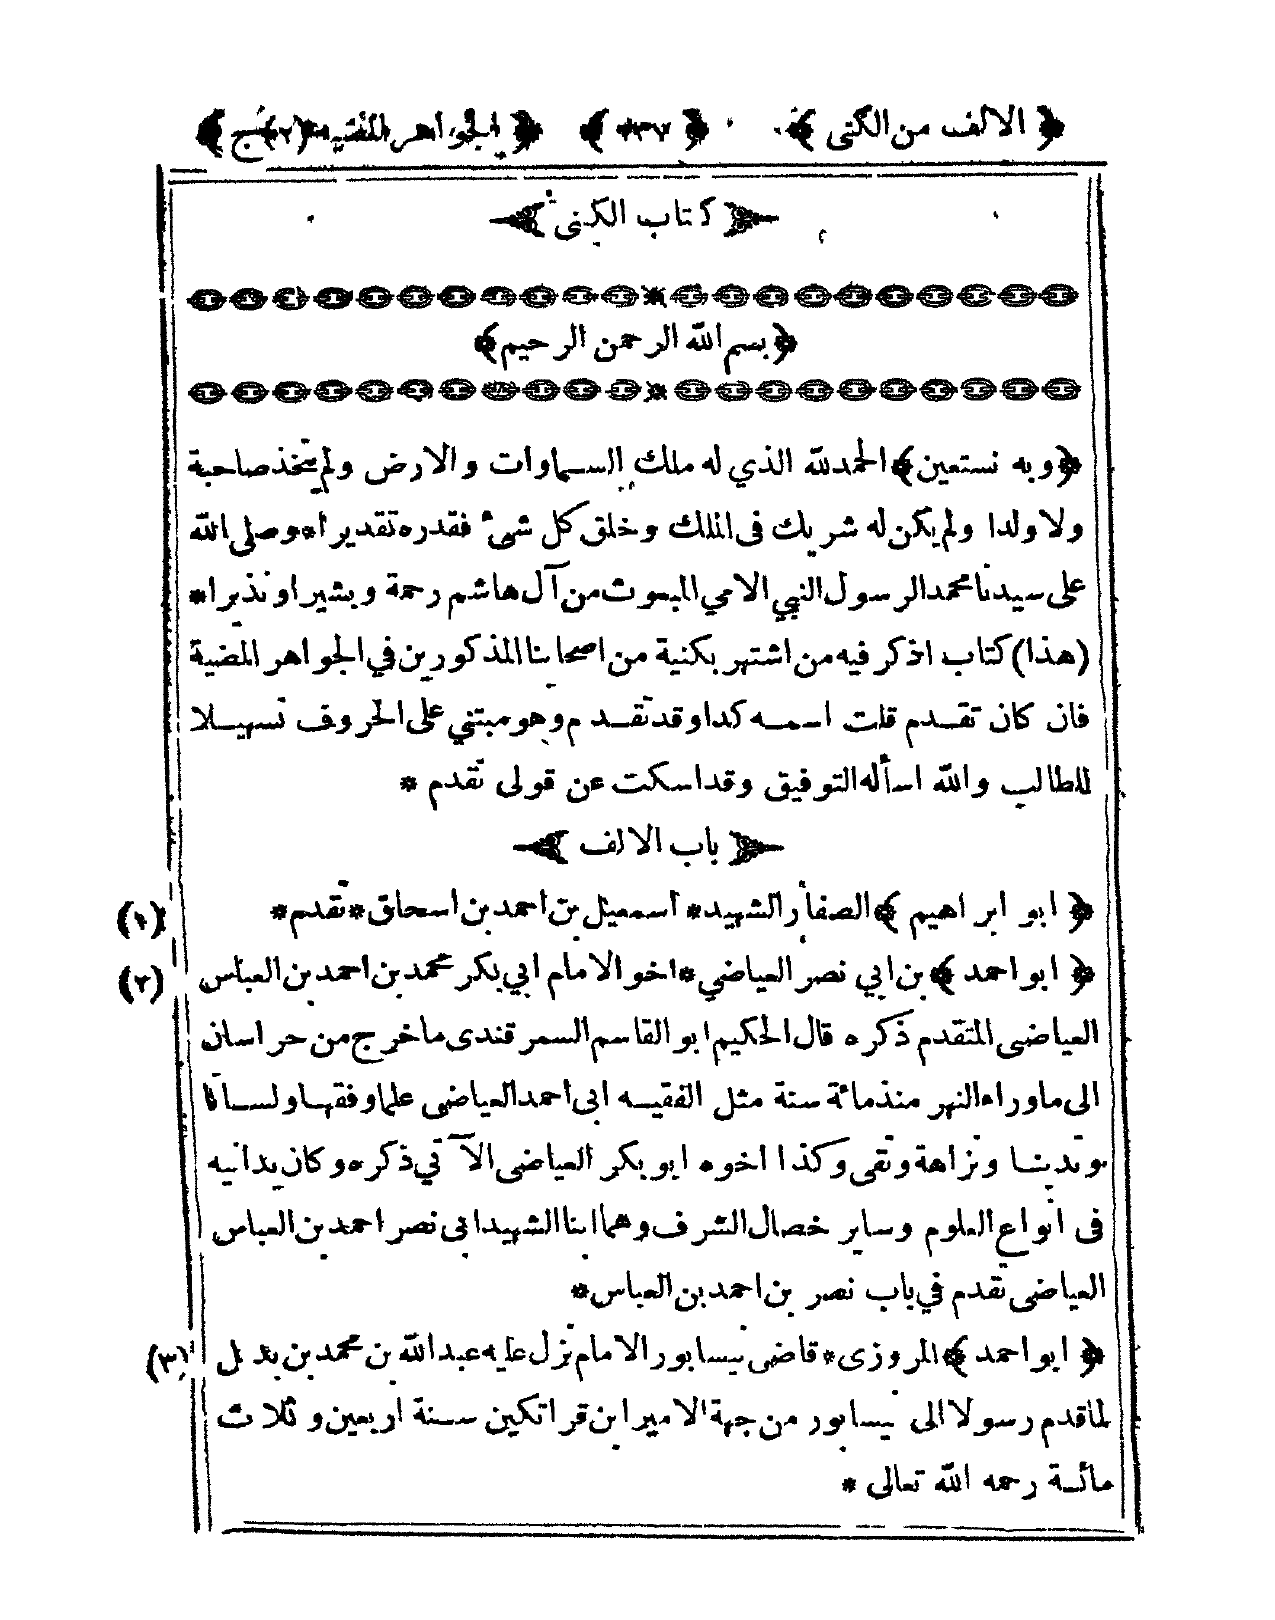 ﴿ الالف من الكنى ﴾ ﴿ ٢٣٧ ﴾ ﴿ الجواهر المضيه ﴾ ﴿ ج (٢) ﴾
كتاب الكنى
﴿ بسم الله الرحمن الرحيم ﴾
﴿ وبه نستعين ﴾ الحمد لله الذي له ملك السماوات والارض ولم يتخذ صاحبة
ولا ولدا ولم يكن له شريك فى الملك وخلق كل شئ فقدره تقديرا * وصلى الله
على سيدنا محمد الرسول النبي الامي المبعوث من آل هاشم رحمة وبشيرا ونذيرا *
(هذا) كتاب اذكر فيه من اشتهر بكنية من اصحابنا المذكورين في الجواهر المضية
فان كان تقدم قلت اسمه كدا وقد تقدم وهو مبتني على الحروف تسهيلا
للطالب والله اسأله التوفيق وقد اسكت عن قولى تقدم *
باب الالف
﴿ ابو ابراهيم ﴾ الصفار الشهيد * اسمعيل بن احمد بن اسحاق * تقدم * (١)
﴿ ابو احمد ﴾ بن ابي نصر العياضي * اخو الامام ابي بكر محمد بن احمد بن العباس (٢)
العياضى المتقدم ذكره قال الحكيم ابو القاسم السمرقندى ما خرج من خراسان
الى ماوراء النهر منذ مائة سنة مثل الفقيه ابى احمد العياضى علما وفقها ولسانا
وتدينا ونزاهة وتقى وكذا اخوه ابو بكر العياضى الآتي ذكره وكان يدانيه
فى انواع العلوم وساير خصال الشرف وهما ابنا الشهيد ابى نصر احمد بن العباس
العياضى تقدم في باب نصر بن احمد بن العباس *
﴿ ابو احمد ﴾ المروزى * قاضى نيسابور الامام نزل عليه عبد الله بن محمد بن بديل (٣)
لما قدم رسولا الى نيسابور من جهة الامير ابن قراتكين سنة اربعين وثلاث
مائة رحمه الله تعالى *